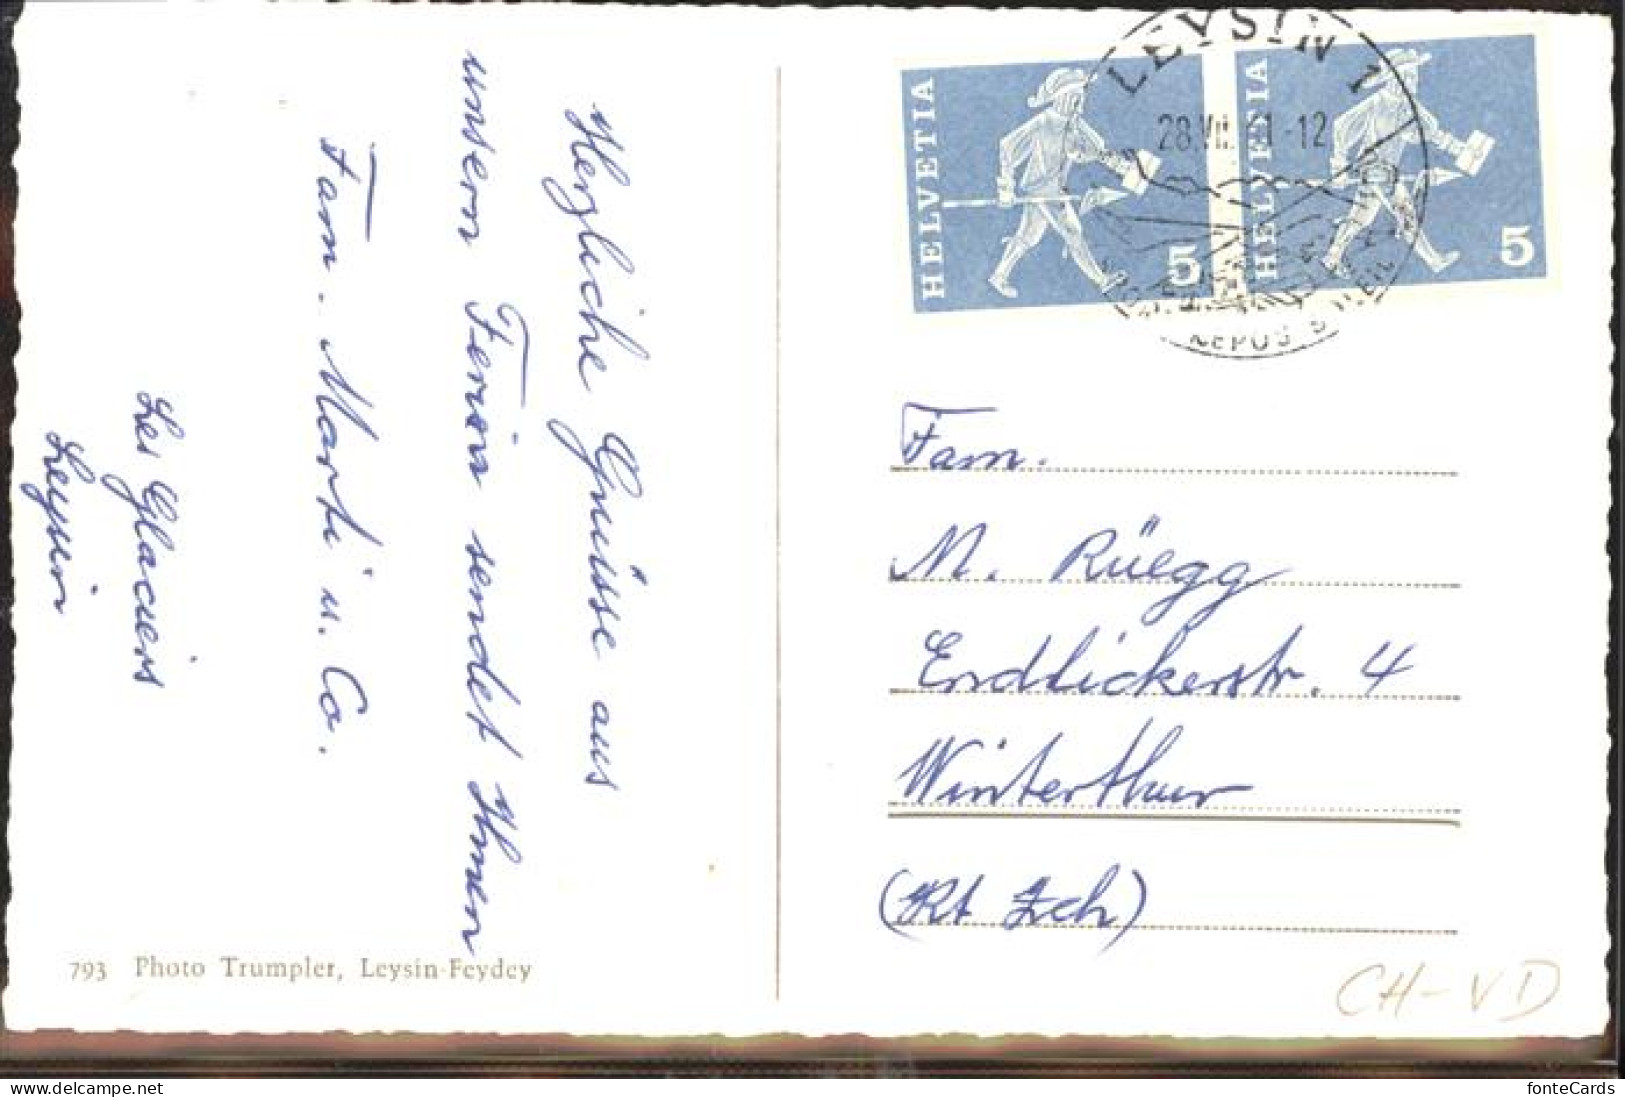 Herzliche Grüsse aus
unsern Ferien sendet Ihnen
Fam. Marti u. Co.
Les Glaciers
Leysin
793 Photo Trumpler, Leysin-Feydey
HELVETIA
5
HELVETIA
5
LEYSIN 1
28.VII. 61-12
REPOS
Fam.
M. Rüegg
Endlickerstr. 4
Winterthur
(Kt Zch)
CH-VD
fonteCards